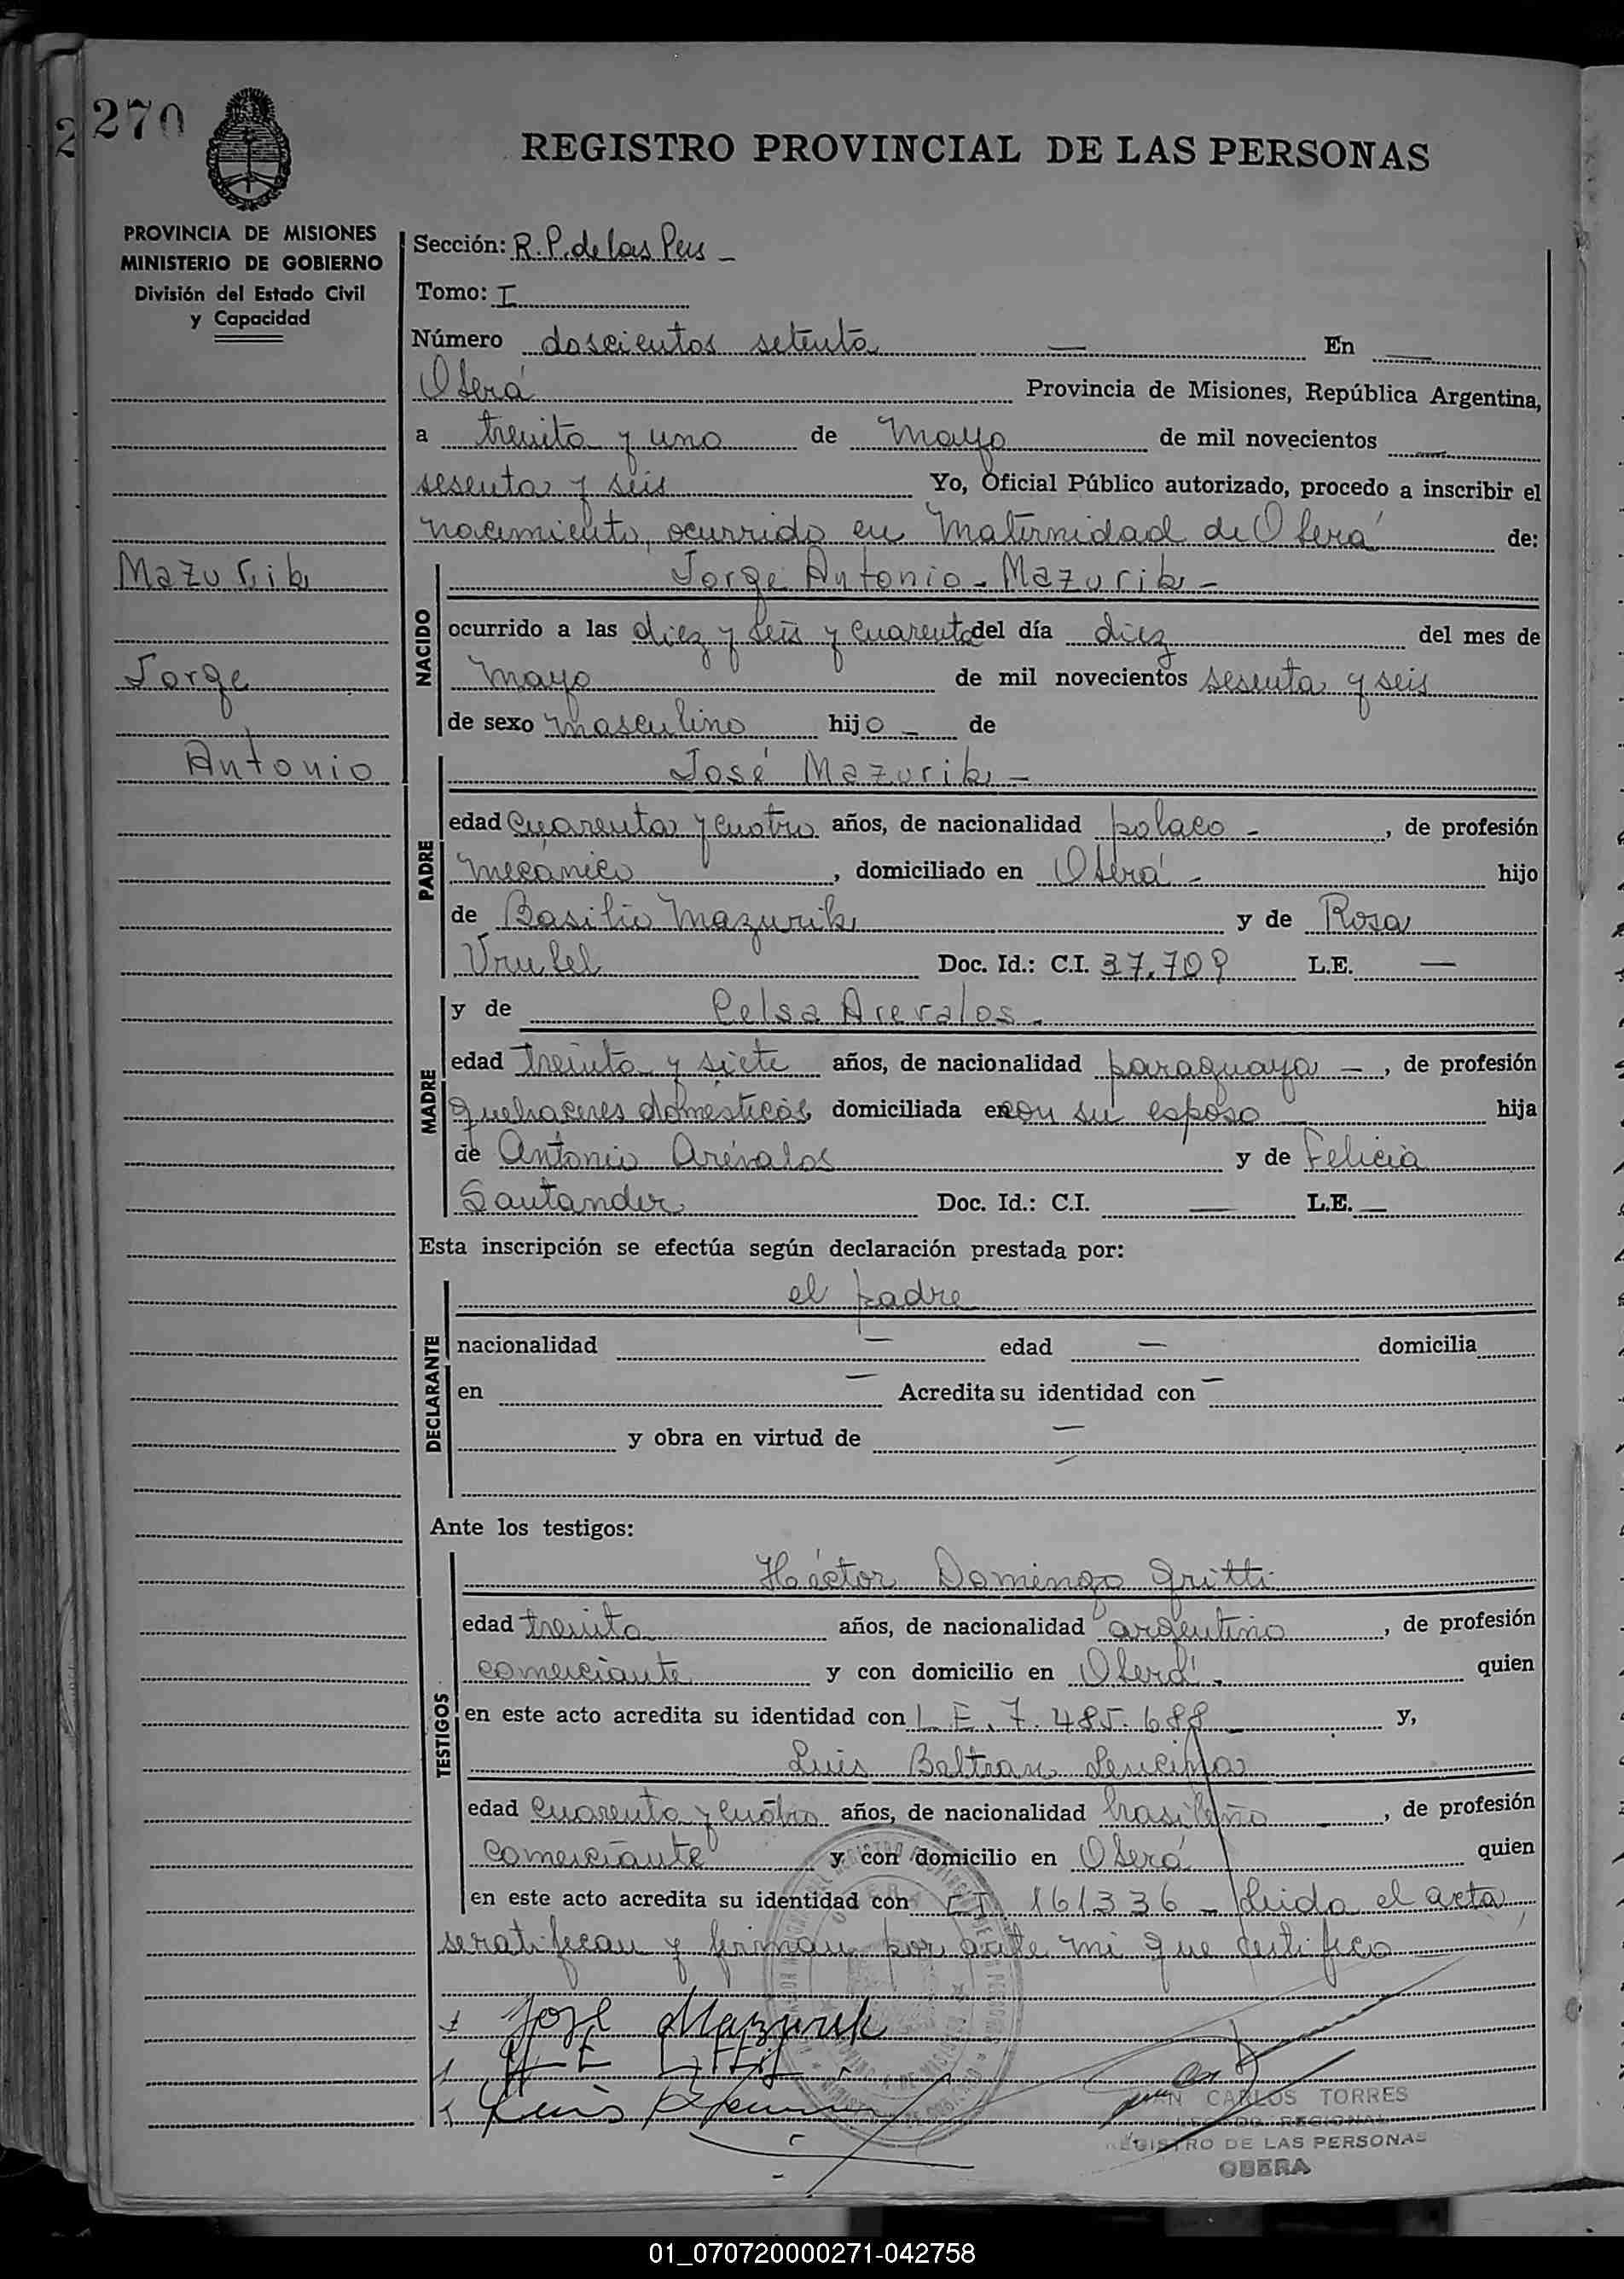 270
REGISTRO PROVINCIAL DE LAS PERSONAS
PROVINCIA DE MISIONES
MINISTERIO DE GOBIERNO
División del Estado Civil
y Capacidad
Sección: R.P. de las Pers -
Tomo: I
Número doscientos setenta — En —
Oberá Provincia de Misiones, República Argentina,
a treinta y uno de Mayo de mil novecientos —
sesenta y seis Yo, Oficial Público autorizado, procedo a inscribir el
nacimiento, ocurrido en Maternidad de Oberá de:
Mazurik
Jorge
Antonio
NACIDO
Jorge Antonio - Mazurik -
ocurrido a las diez y seis y cuarenta del día diez del mes de
mayo de mil novecientos sesenta y seis
de sexo masculino hijo - de
PADRE
José Mazurik -
edad cuarenta y cuatro años, de nacionalidad polaco - , de profesión
mecánico , domiciliado en Oberá - hijo
de Basilio Mazurik y de Rosa
Vrubel Doc. Id.: C.I. 37.709 L.E. —
MADRE
y de Celsa Arevalos -
edad treinta y siete años, de nacionalidad paraguaya - , de profesión
quehaceres domésticos domiciliada en con su esposo — hija
de Antonio Arévalos y de Felicia
Santander Doc. Id.: C.I. — L.E. —
Esta inscripción se efectúa según declaración prestada por:
DECLARANTE
el padre
nacionalidad — edad — domicilia
en — Acredita su identidad con —
y obra en virtud de —
Ante los testigos:
TESTIGOS
Héctor Domingo Gritti
edad treinta años, de nacionalidad argentino , de profesión
comerciante y con domicilio en Oberá - quien
en este acto acredita su identidad con L E. 7.485.688 - y,
Luis Beltran Lencina
edad cuarenta y cuatro años, de nacionalidad brasileño - , de profesión
comerciante y con domicilio en Oberá quien
en este acto acredita su identidad con CI. 161336 - Leida el acta
se ratifican y firman por ante mi que certifico
José Mazurik
Luis
JUAN CARLOS TORRES
REGIONAL
REGISTRO DE LAS PERSONAS
OBERA
01_070720000271-042758